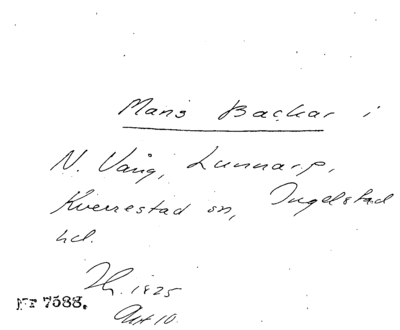 Mans Backar i
N. Vång, Lunnarp,
Kverrestad sn, Ingelstad
hd.
1825
7588.
Akt 10.